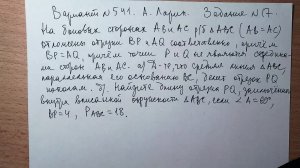 Вариант №541. А. Ларин. Задание №17.
На боковых сторонах AB и AC р/б △ABC (AB=AC)
отложены отрезки BP и AQ соответственно, причём
BP=AQ, причём точки P и Q не являются середина-
ми сторон AB и AC. а) Д-те, что средняя линия △ABC,
параллельная его основанию BC, делит отрезок PQ
пополам. б). Найдите длину отрезка PQ, заключённого
внутри вписанной окружности △ABC, если ∠A=60°,
BP=4, P ABC=18.